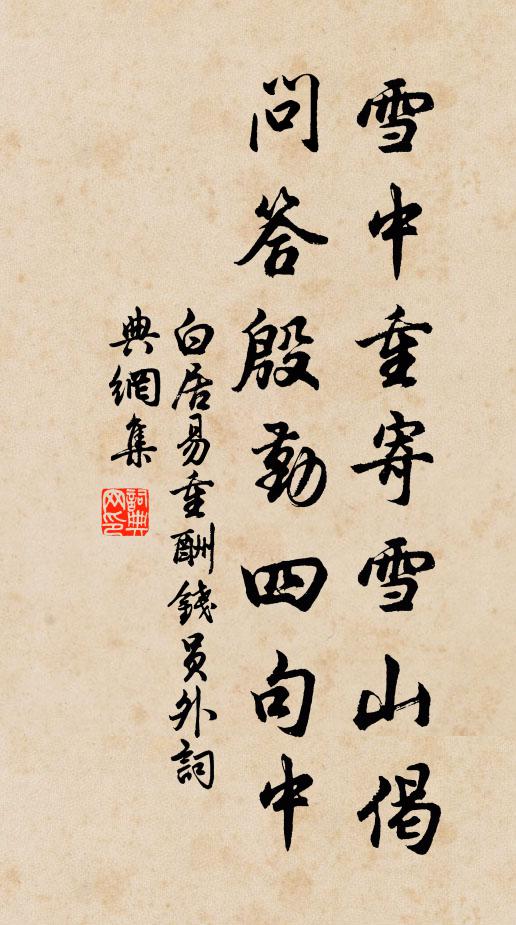 雪中重寄雪山偈
問答殷勤四句中
白居易重酬錢員外詞
典網集
詞典網印